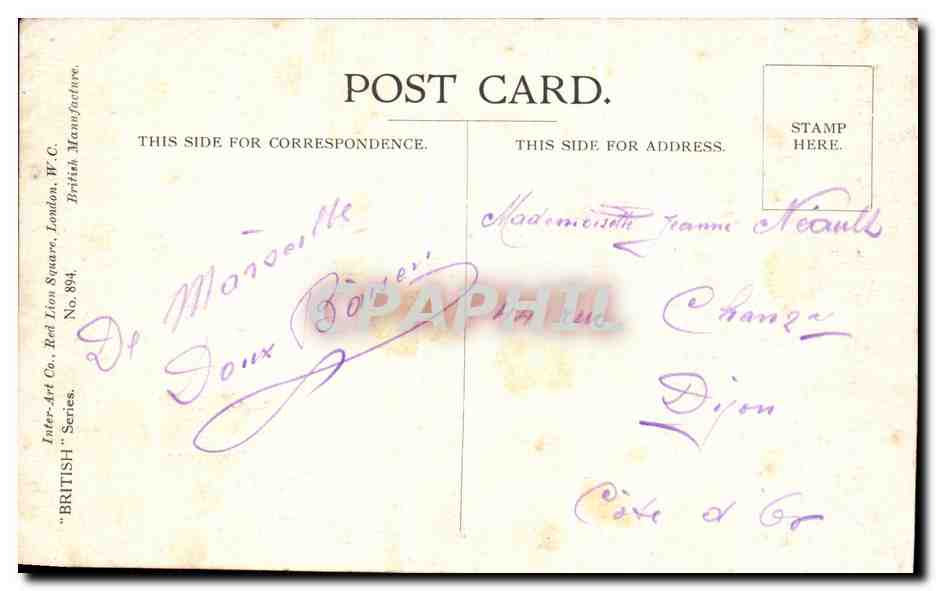 POST CARD.
THIS SIDE FOR CORRESPONDENCE.
THIS SIDE FOR ADDRESS.
STAMP
HERE.
Inter-Art Co., Red Lion Square, London, W.C.
British Manufacture.
"BRITISH" Series.
No. 894.
De Marseille
Doux Baiser
Mademoiselle Jeanne Néault
rue Chanzy
Dijon
Côte d'Or
CPAPHIL